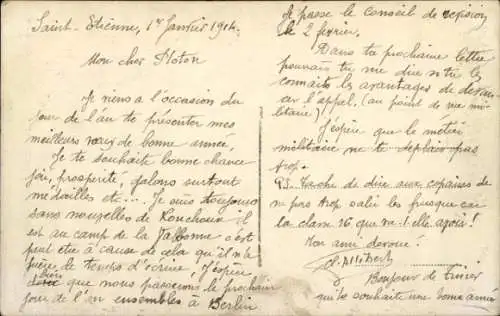 Saint-Etienne, 1er Janvier 1914.
Mon cher Ploton
Je viens à l'occasion du
jour de l'an te présenter mes
meilleurs vœux de bonne année,
Je te souhaite bonne chance
joie, prospérité, galons surtout
médailles etc... Je suis toujours
sans nouvelles de il
est au camp de la c'est
peut être à cause de cela qu'il n'a
guère de temps d'écrire, J'espère
bien que nous passerons le prochain
jour de l'an ensembles à Berlin
Je passe le Conseil de révision
le 2 février.
Dans ta prochaine lettre
pourrais tu me dire si tu
connais les avantages de devancer
l'appel. (au point de vue mi-
litaire)
J'espère que le métier
militaire ne te déplais pas
trop.
P.S. Tache de dire aux copains de
ne pas trop salir les frusques car
la classe 16 que
Ton ami dévoué.
Bonjour de
qui te souhaite une bonne année